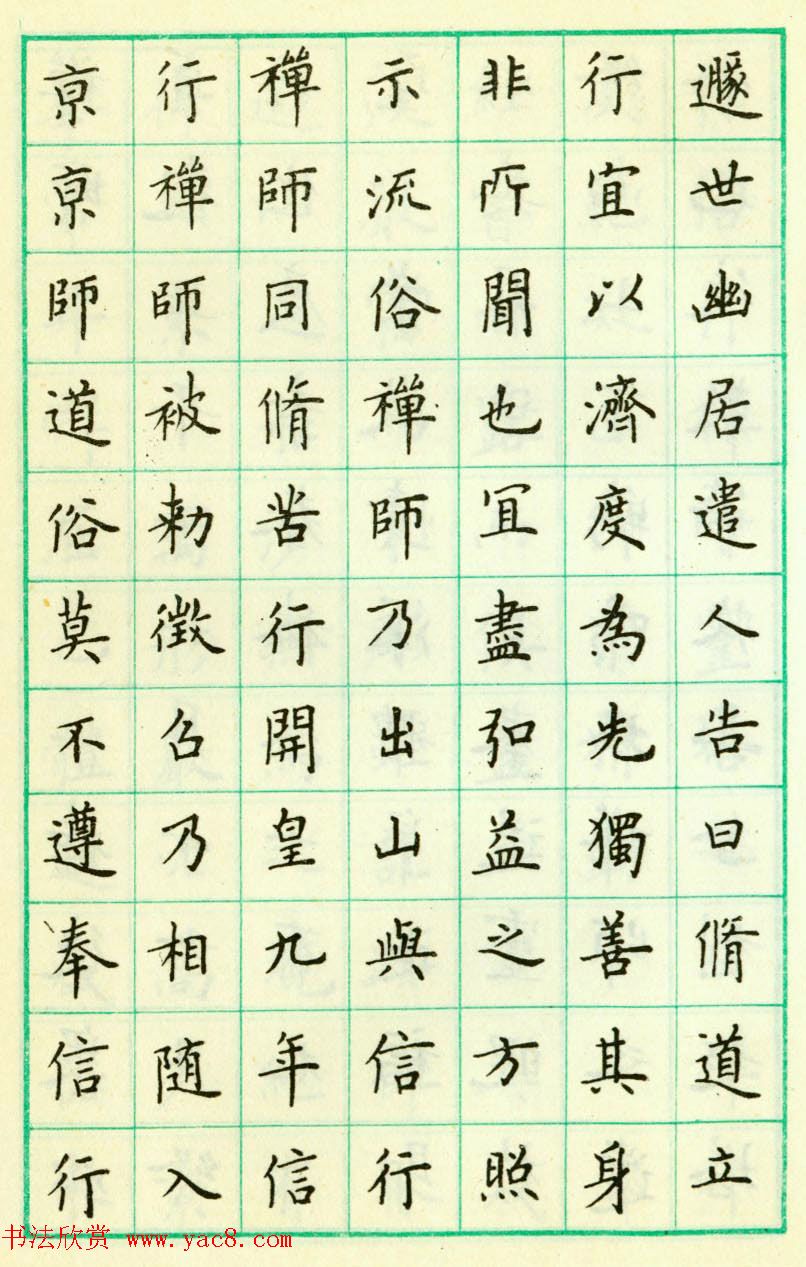 遯世幽居遣人告曰脩道立
行宜以濟度為先獨善其身
非所聞也宜盡弘益之方照
示流俗禪師乃出山與信行
禪師同脩苦行開皇九年信
行禪師被勑徵召乃相随入
京京師道俗莫不遵奉信行
书法欣赏 www.yac8.com